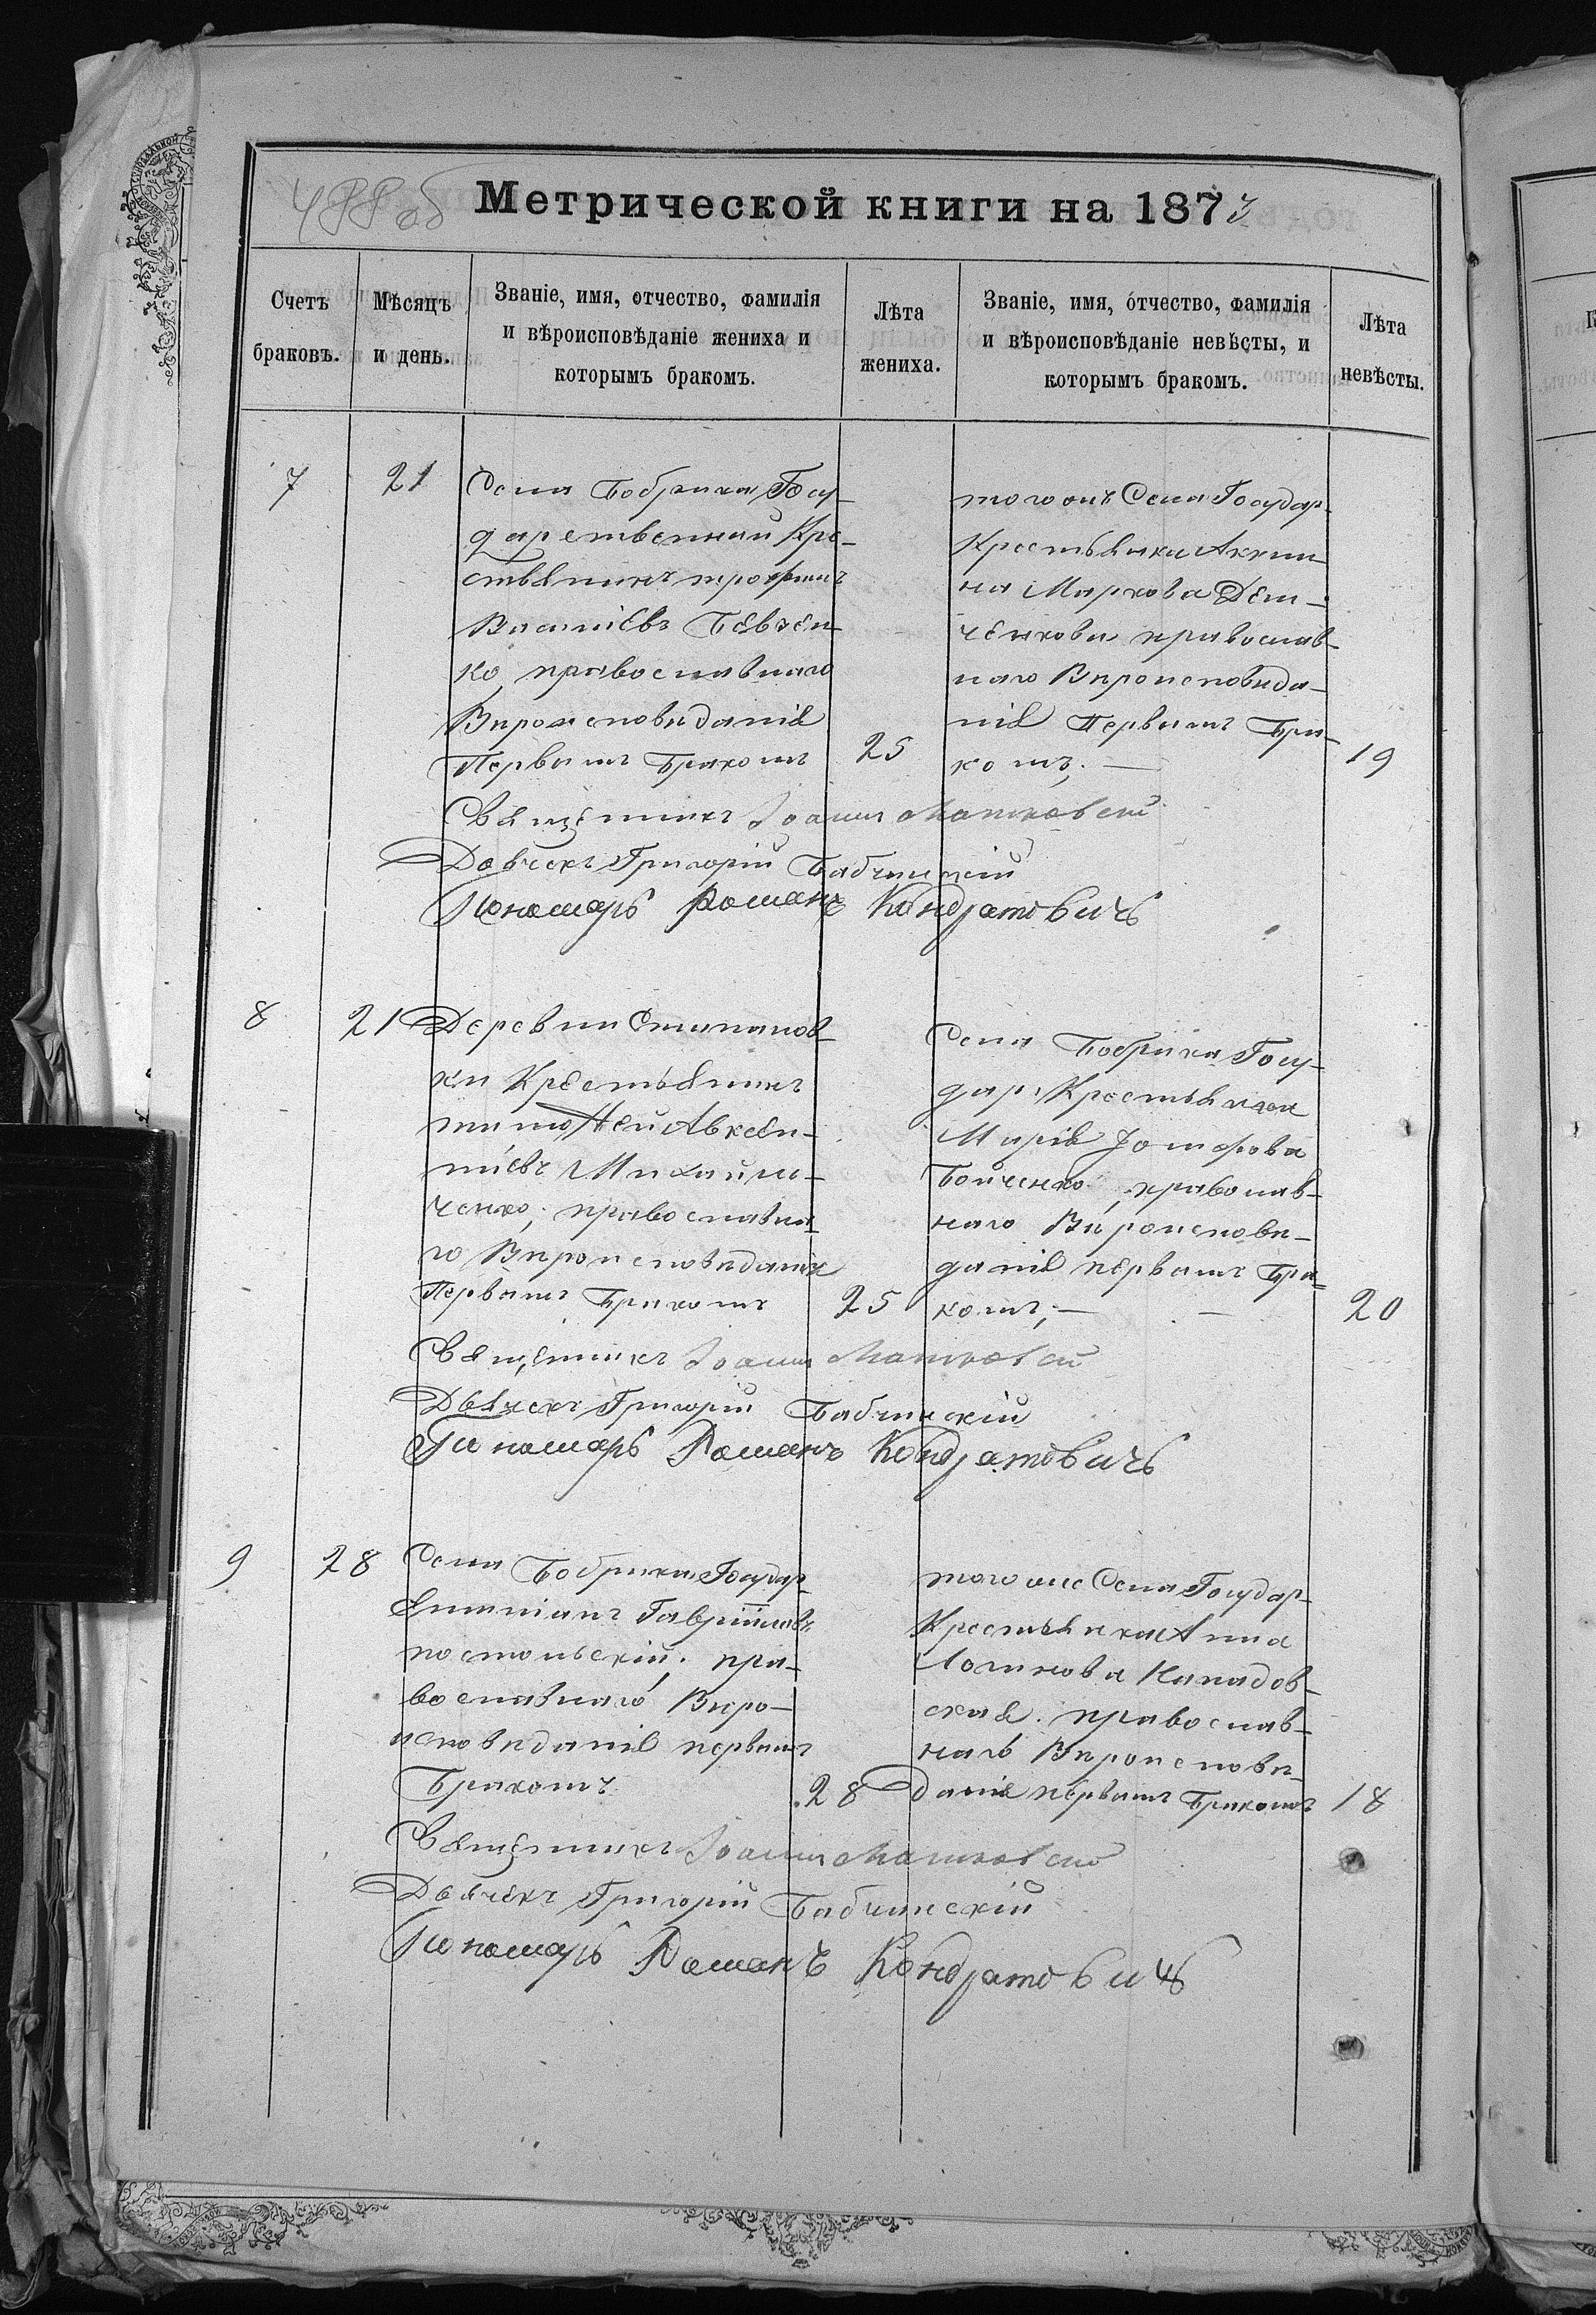 488 об
Метрической книги на 1873
Счетъ браковъ.
Мѣсяцъ и день.
Званіе, имя, отчество, фамилія
и вѣроисповѣданіе жениха и
которымъ бракомъ.
Лѣта жениха.
Званіе, имя, отчество, фамилія
и вѣроисповѣданіе невѣсты, и
которымъ бракомъ.
Лѣта невѣсты.
7
21
Села Бобрика Госу-
дарственний Кре-
стьянинъ трофимъ
Василіевъ Бевзен-
ко, православнаго
Вироисповиданія
Первымъ Бракомъ
25
того онъ Села Государ.
Крестьянка Акили-
на Маркова Дем-
ченкова православ-
наго Вироисповида-
нія Первымъ Бра-
комъ; —
19
Священникъ Іоаннъ
Дьячекъ Григорій Бабчинскій
Пономарь Романъ Кондратовичъ
8
21
Деревни Степанов-
ки Крестьянинъ
тимоѳей Авксен-
тіевъ Михайль-
ченко; православна-
го Вироисповиданія
Первымъ Бракомъ
25
Села Бобрика Госу-
дар. Крестьянка
Марія
Бойченко, православ-
наго Вироиспови-
данія первымъ Бра-
комъ; —
20
Священникъ Іоаннъ
Дьячекъ Григорій Бабчинскій
Пономарь Романъ Кондратовичъ
9
28
Села Бобрика Государ-
Гавріиловъ
постольскій. пра-
вославнаго Виро-
исповиданія первымъ
Бракомъ
28
того же Села Государ-
Крестьянка Анна
Логинова
ская. православ-
наго Вироиспови-
данія первымъ Бракомъ
18
Священникъ Іоаннъ
Дьячекъ Григорій Бабчинскій
Пономарь Романъ Кондратовичъ